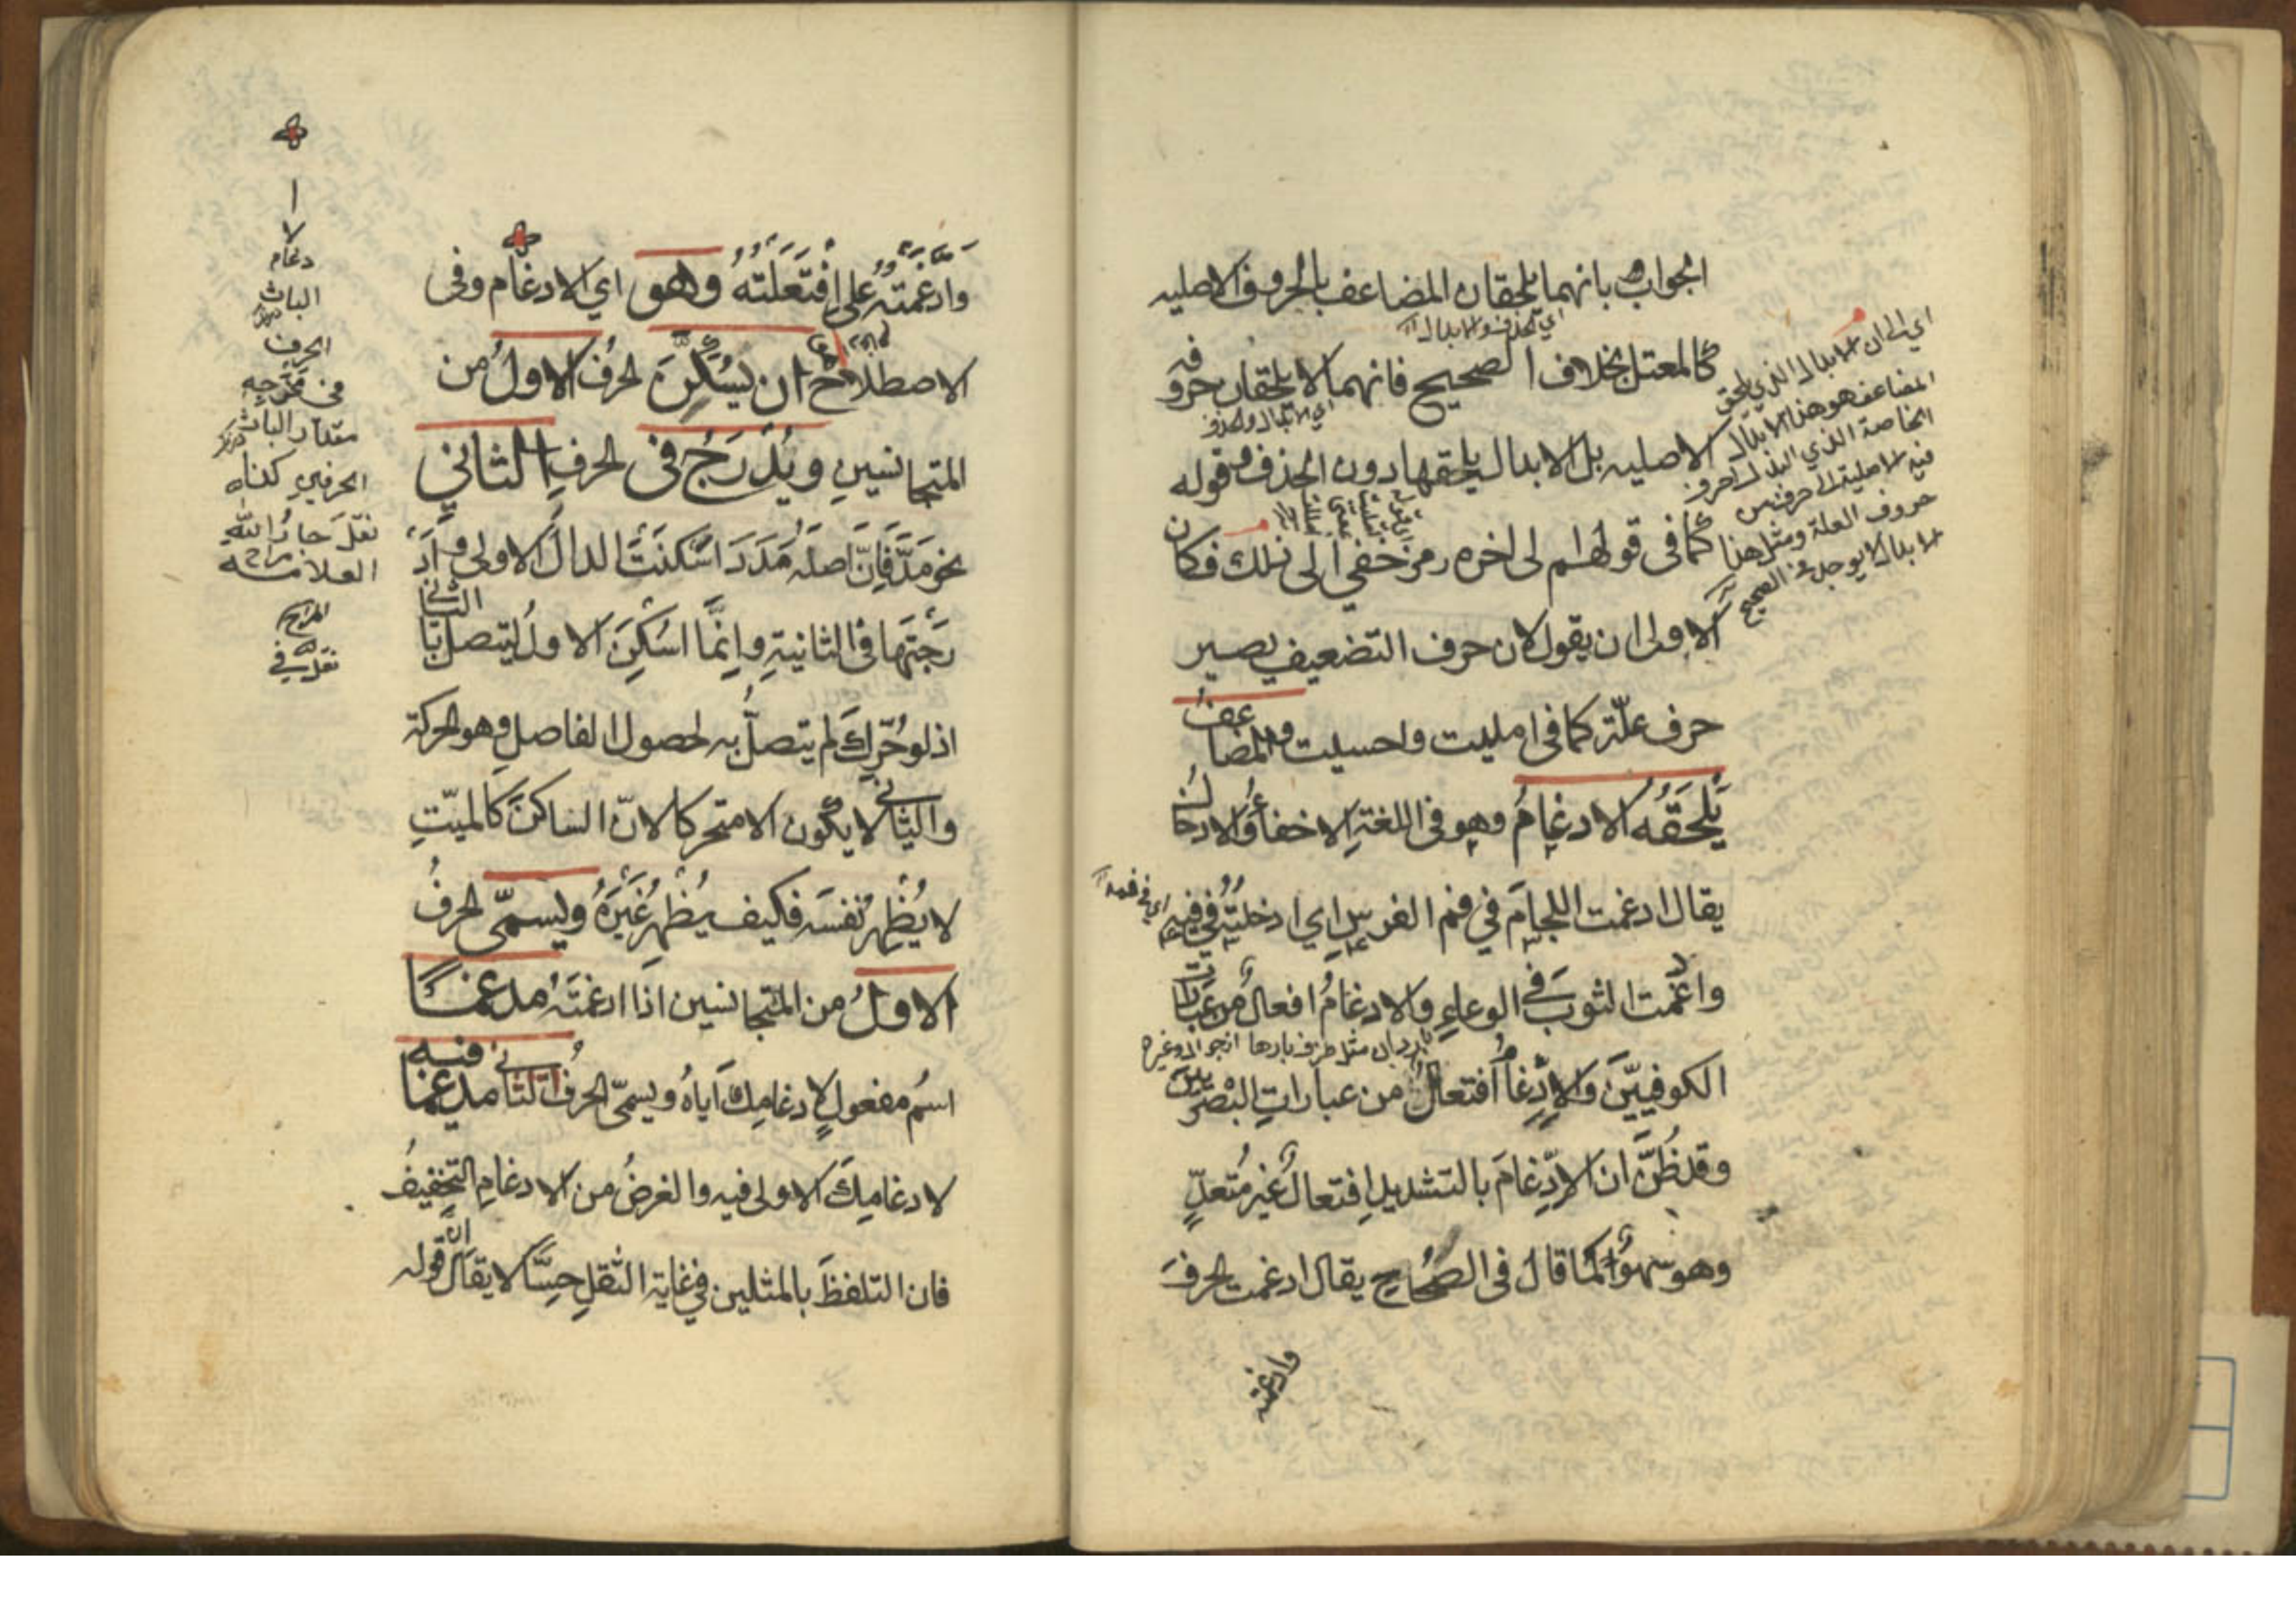 الجواب بانهما يلحقان المضاعف بالحروف الاصليه
اي الحذف والابدال
كالمعتل بخلاف الصحيح فانهما لا يلحقان حرو فه
اي الابدال والحذف
الاصليه بل الابدال يلحقها دون الحذف وقوله
كما فى قولهم الى اخره رمز خفي الى ذلك فكان
الاولى ان يقول لان حرف التضعيف يصير
حرف علّة كما فى امليت واحسيت والمضاعفُ
يَلحَقُه الادغامُ وهو فى اللغةِ الاخفاءُ والادخالُ
يقال ادغمت اللجامَ في فم الفرسِ اي ادخلتُه في فيه
اي في فمه
وادغمت الثوبَ في الوعاءِ والادغامُ افعالٌ من عباراتِ
الكوفيّين والادِّغامُ افتعالٌ من عباراتِ البصريين
وقد ظُنَّ ان الادِّغامَ بالتشديدِ افتعالٌ غيرُ متعدٍّ
وهو سهوٌ لما قال فى الصحاح يقال ادغمت الحرفَ
وادغمته
اي الى ان الابدال الذي يلحق
المضاعف هو هذا الابدال
الخاصة الذي
حروف العلة ومثل هذا
الابدال لا يوجد في الصحيح
وادّغمتُه على افْتَعَلْتُهُ وهو اي الادغام وفى
الاصطلاح ان يُسَكَّنَ الحرفُ الاولُ من
المتجانسينِ ويُدْرَجُ فى الحرفِ الثانى
نحو مَدَّ فَاِنّ اصلَه مَدَدَ اسْكنَتْ الدالَ الاولى واَدْ
رَجْتَهَا فى الثانيةِ وانّما اسْكِنَ الاولُ ليتصل بالثانى
اذ لو حُرّك لم يتصلْ به لحصول الفاصلِ وهو الحركة
والثانى لا يكون الا متحركا لانّ الساكنَ كالميّتِ
لا يُظْهِرُ نفسَه فكيف يُظْهِرُ غَيْرَهُ ويسمّى الحرفُ
الاولُ من المتجانسين اذا ادغمتَه مدغمًا
اسمُ مفعولٍ لادغامِك اياهُ ويسمّى الحرفُ الثانى مدغما فيه
لادغامِكَ الاولى فيه والغرضُ من الادغامِ التخفيفُ
فان التلفظَ بالمثلين في غاية الثقلِ حِسًّا لا يقالُ انّ قوله
الادغام
الباث
الحرف
فى مخرجه
مقدار الباث
الحرفين كذا
نقل جار الله
العلامه
المراح
نقل في